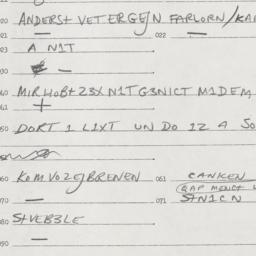 20 ANDERSt VETERGEJN FARLORN/KA
21 — 022 —
A N1T
023
030 —
40 MIRHOBt23X N1TG3NICT M1DEM
41 +
50 DORT 1 L1XT UN DO 1Z A SO
60 KOMVOZEJBRENEN 061 CANKEN
(GAP MENCH
70 — 071 StN1CN
80 StVEB3LE
090 —